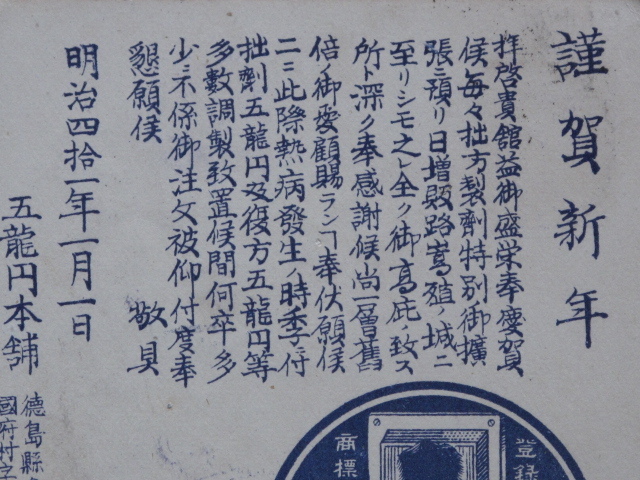 謹賀新年
拝啓貴舘益御盛栄奉慶賀
候毎々拙方製劑特別御擴
張ニ預リ日増販路嵩殖ノ城ニ
至リシモ之レ全ク御高庇ノ致ス
所ト深ク奉感謝候尚一層舊
倍御愛顧賜ランヿ奉伏願候
二ニ此際熱病發生ノ時季ニ付
拙劑五龍円及復方五龍円等
多數調製致置候間何卒多
少ニ不係御注文被仰付度奉
懇願候
敬具
明治四拾一年一月一日
五龍円本舗
德島縣
國府村字
登録
商標